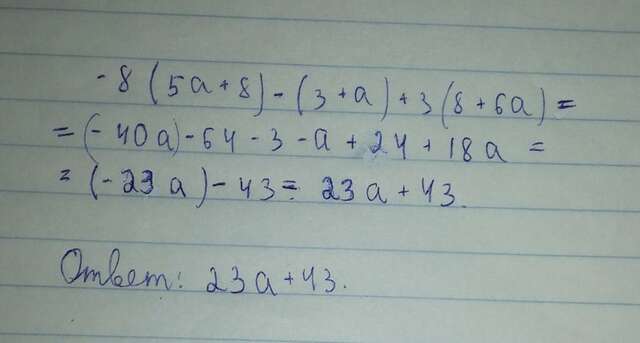 -8(5a+8)-(3+a)+3(8+6a)=
=(-40a)-64-3-a+24+18a=
=(-23a)-43=23a+43.
Ответ: 23a+43.